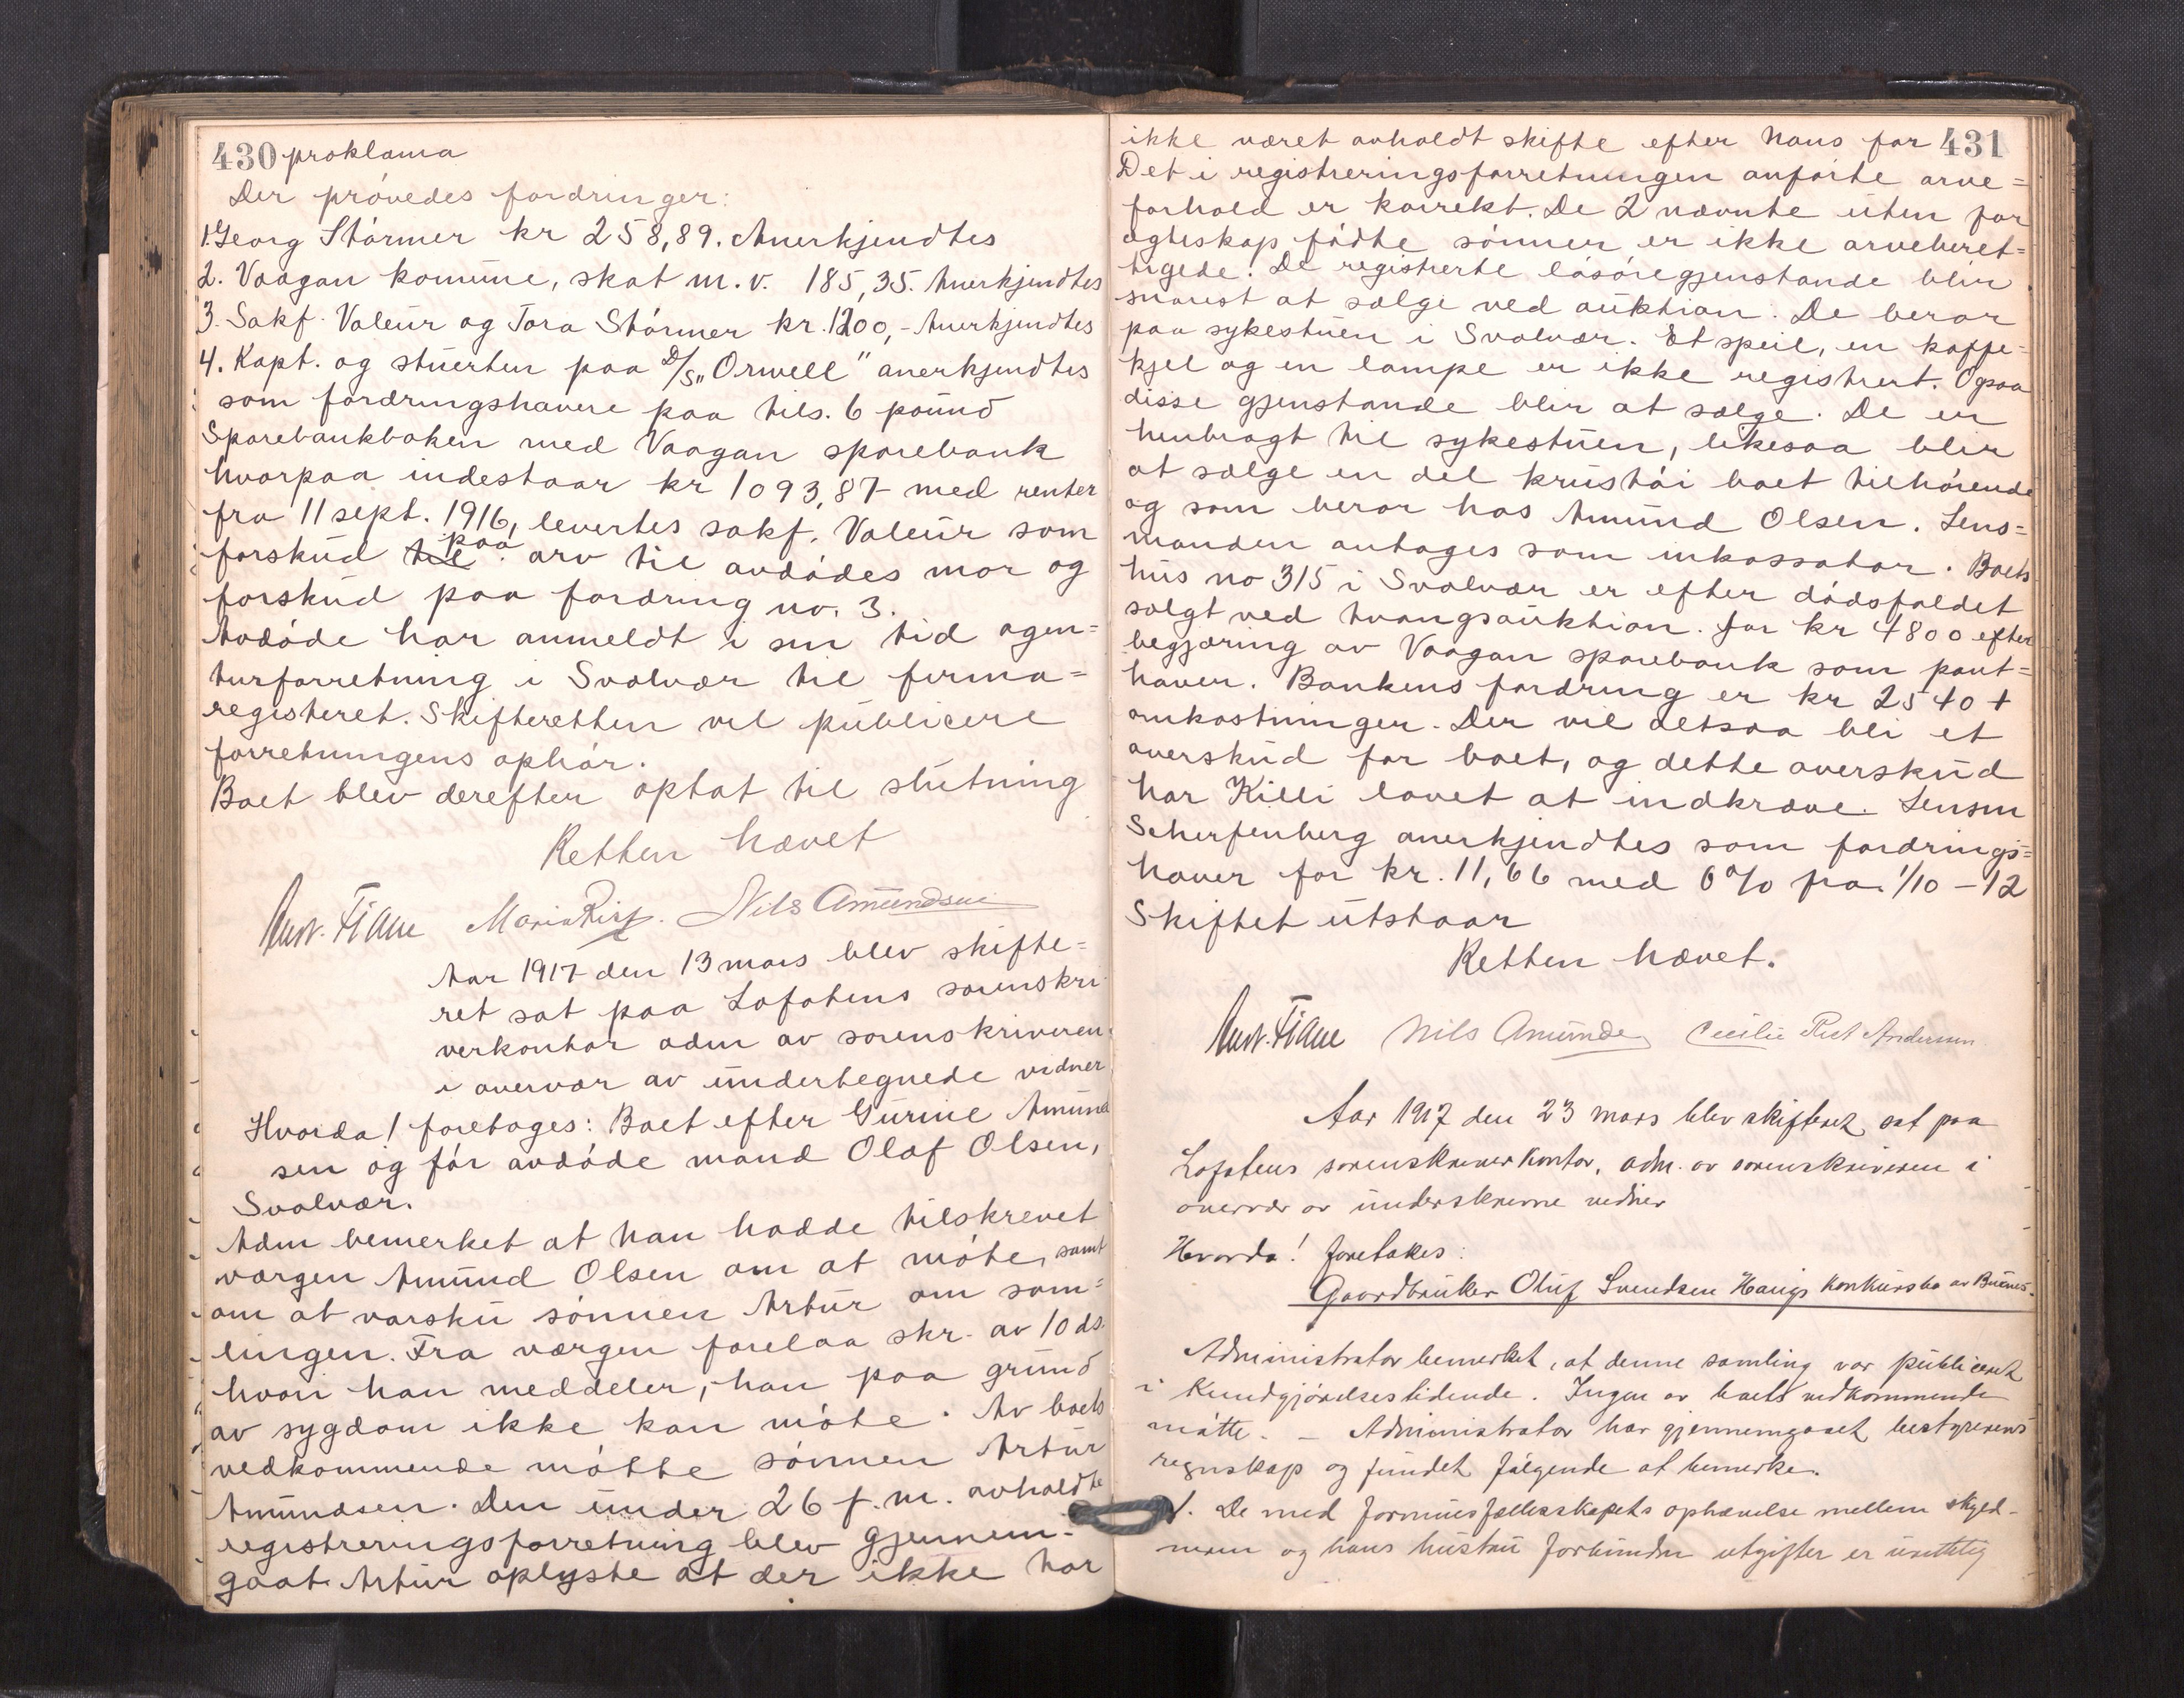 430 proklama
Der prövedes fordringer:
1. Georg Störmer kr 258,89. Anerkjendtes
2. Vaagan komune, skat m.v. 185,35. Anerkjendtes
3. Sakf. Valeur og Tora Störmer kr. 1200,- Anerkjendtes
4. Kapt. og stuerten paa D/S "Orwell" anerkjendtes
som fordringshavere paa tils. 6 pound
Sparebankboken med Vaagan sparebank
hvorpaa indestaar kr 1093,87 med renter
fra 11 sept. 1916, levertes sakf. Valeur som
forskud til paa arv til avdödes mor og
forskud paa fordring no. 3.
Avdöde har anmeldt i sin tid agen=
turforretning i Svolvær til firma=
registeret. Skifteretten vil publicere
forretningens ophör.
Boet blev derefter optat til slutning
Retten hævet
Ant. Fiane Maria Nils Amundsen
Aar 1917 den 13 mars blev skifte=
ret sat paa Lofotens sorenskri
verkontor adm av sorenskriveren
i overvær av undertegnede vidner
Hvorda! foretages: Boet efter Gurine Amund
sen og för avdöde mand Olaf Olsen,
Svolvær.
Adm bemerket at han hadde tilskrevet
værgen Amund Olsen om at möte, samt
om at varsku sönnen Artur om sam=
lingen. Fra værgen forelaa skr. av 10 ds.
hvori han meddeler, han paa grund
av sygdom ikke kan möte. Av boets
vedkommende mötte sönnen Artur
Amundsen. Den under 26 f.m. avholdte
registreringsforretning blev gjennem-
gaat. Artur oplyste at der ikke har
ikke været avholdt skifte efter hans far 431
Det i registreringsforretningen anförte arve=
forhold er korrekt. De 2 nævnte uten for
egteskap födte sönner er ikke arveberet=
tigede. De registrerte lösöregjenstande blir
snarest at sælge ved auktion. De beror
paa sykestuen i Svolvær. Et speil, en kaffe-
kjel og en lampe er ikke registrert. Ogsaa
disse gjenstande blir at sælge. De er
henbragt til sykestuen, likesaa blir
at sælge en del krustöi boet tilhörende
og som beror hos Amund Olsen. Lens=
manden antages som inkassator. Boets
hus no 315 i Svolvær er efter dödsfaldet
solgt ved tvangsauktion. for kr 4800 efter
begjæring av Vaagan sparebank som pant=
haver. Bankens fordring er kr 2540 +
omkostninger. Der vil altsaa bli et
overskud for boet, og dette overskud
har Killi lovet at indkræve. Lensm
Scherfenberg anerkjendtes som fordrings=
haver for kr. 11,66 med 6% fra 1/10 - 12
Skiftet utstaar
Retten hævet.
Ant. Fiane Nils Amunds Cecilie Andersen
Aar 1917 den 23 mars blev skifteret sat paa
Lofotens sorenskriverkontor, adm. av sorenskriveren i
overvær av underskrevne vidner
Hvorda! foretakes:
Gaardbruker Oluf Svendsen Haugs konkursbo av Buknes.
Administrator bemerket, at denne samling var publiceret
i Kundgjörelsestidende. Ingen av boets vedkommende
mötte. - Administrator har gjennemgaaet bestyrerens
regnskap og fundet fölgende at bemerke.
1. De med formuesfællesskapets ophævelse mellem skyld-
neren og hans hustru forbundne utgifter er uvettig